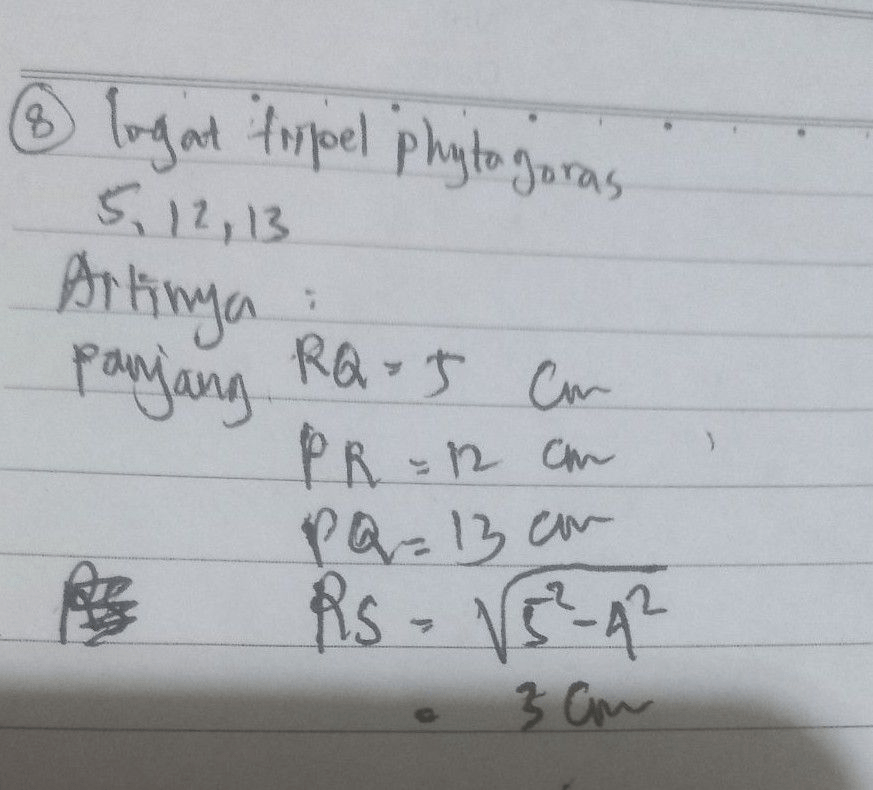 ⑧ Ingat tripel phytagoras
5, 12, 13
Artinya :
panjang RQ = 5 cm
PR = 12 cm
PQ = 13 cm
RS = √5²-4²
= 3 cm